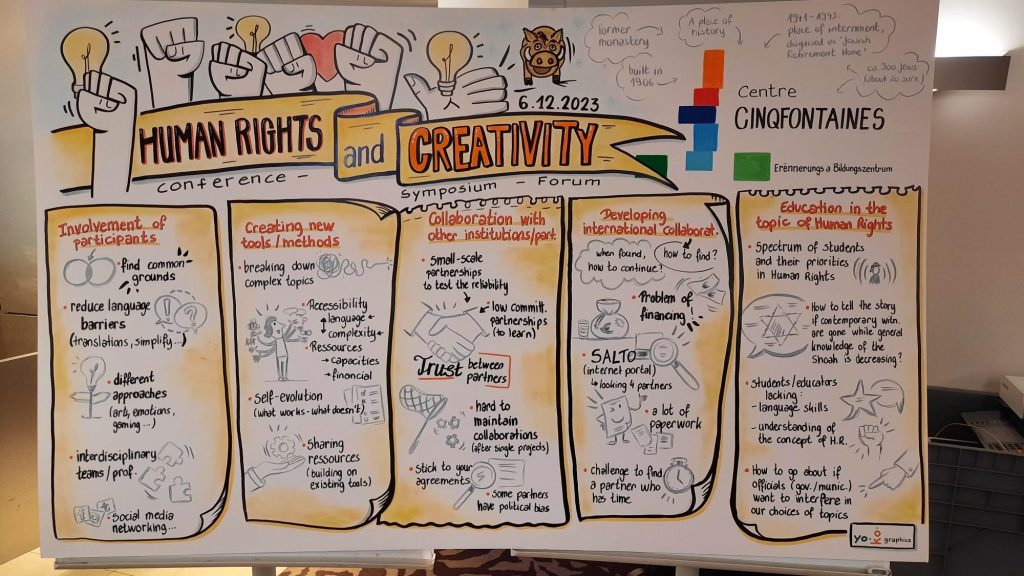 former
monastery
built in
1906
A place of
history
1941-1943
place of internment,
disguised as 'Jewish
Retirement Home'
ca. 300 Jews
(about 20 surv.)
6.12.2023
HUMAN RIGHTS
and
CREATIVITY
conference -
Symposium - Forum
Centre
CINQFONTAINES
Erënnerungs a Bildungszentrum
Involvement of
participants
• find common
grounds
• reduce language
barriers
(translations, simplify...)
• different
approaches
(art, emotions,
gaming...)
• interdisciplinary
teams/prof.
• social media
networking...
Creating new
tools/methods
• breaking down
complex topics
• Accessibility
→ language
→ complexity
• Ressources
→ capacities
→ financial
• Self-evolution
(what works - what doesn't)
• Sharing
ressources
(building on
existing tools)
Collaboration with
other institutions/part.
• small-scale
partnerships
to test the reliability
• low committ.
partnerships
(to learn)
Trust between
partners
• hard to
maintain
collaborations
(after single projects)
• Stick to your
agreements
• some partners
have political bias
Developing
international collaborat.
when found,
how to continue?
how to find?
• Problem of
financing
• SALTO
(internet portal)
↳ looking 4 partners
• a lot of
paperwork
• challenge to find
a partner who
has time
Education in the
topic of Human Rights
• Spectrum of students
and their priorities
in Human Rights
• How to tell the story
if contemporary witn.
are gone while general
knowledge of the
Shoah is decreasing?
• Students/educators
lacking:
- language skills
- understanding of
the concept of H.R.
• How to go about if
officials (gov./munic.)
want to interfere in
our choices of topics
yo.kô graphics